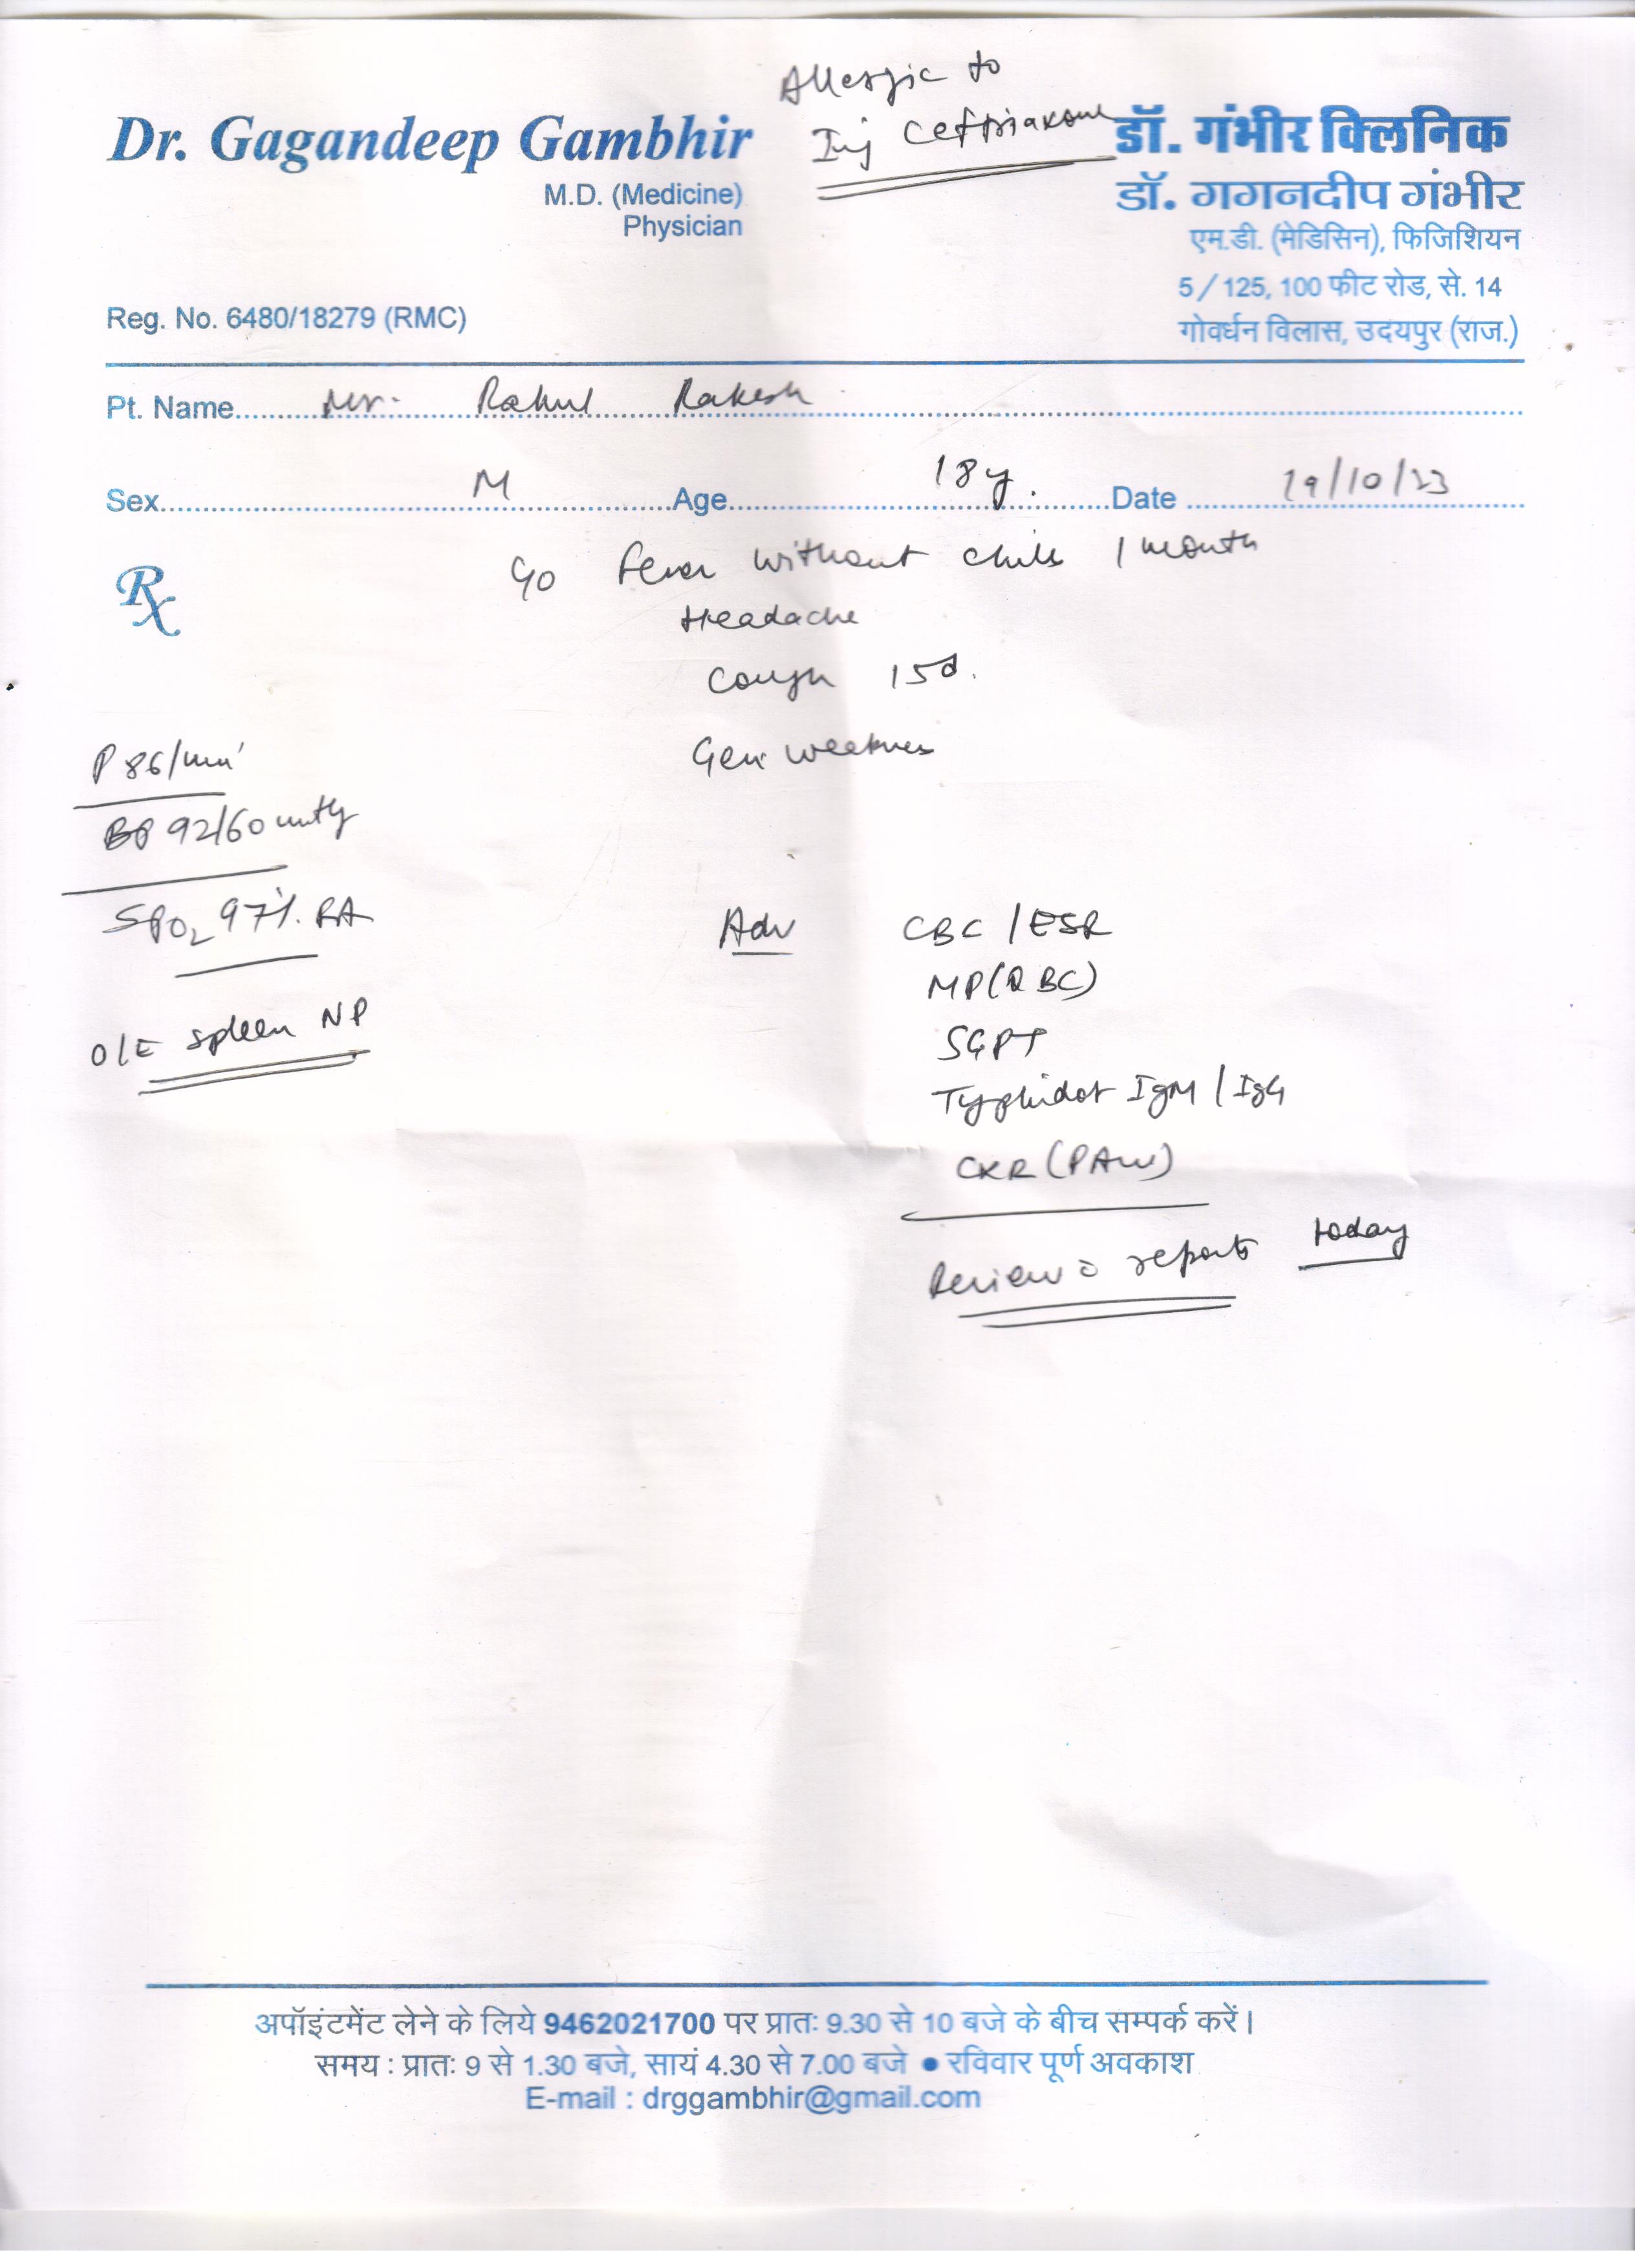 Allergic to
Inj Ceftriaxone
Dr. Gagandeep Gambhir
M.D. (Medicine)
Physician
Reg. No. 6480/18279 (RMC)
डॉ. गंभीर क्लिनिक
डॉ. गगनदीप गंभीर
एम.डी. (मेडिसिन), फिजिशियन
5/125, 100 फीट रोड, से. 14
गोवर्धन विलास, उदयपुर (राज.)
Pt. Name Mr. Rahul Rakesh
Sex M Age 18y. Date /10/23
Rx
C/o Fever without chills 1 month
Headache
Cough 15d.
Gen. weakness
P 86/min
BP 92/60 mmHg
SPO2 97%. RA
O/E spleen NP
Adv CBC / ESR
MP(QBC)
SGPT
Typhidot IgM / IgG
CXR (PAW)
Review c̄ reports today
अपॉइंटमेंट लेने के लिये 9462021700 पर प्रातः 9.30 से 10 बजे के बीच सम्पर्क करें।
समय : प्रातः 9 से 1.30 बजे, सायं 4.30 से 7.00 बजे ● रविवार पूर्ण अवकाश
E-mail : drggambhir@gmail.com